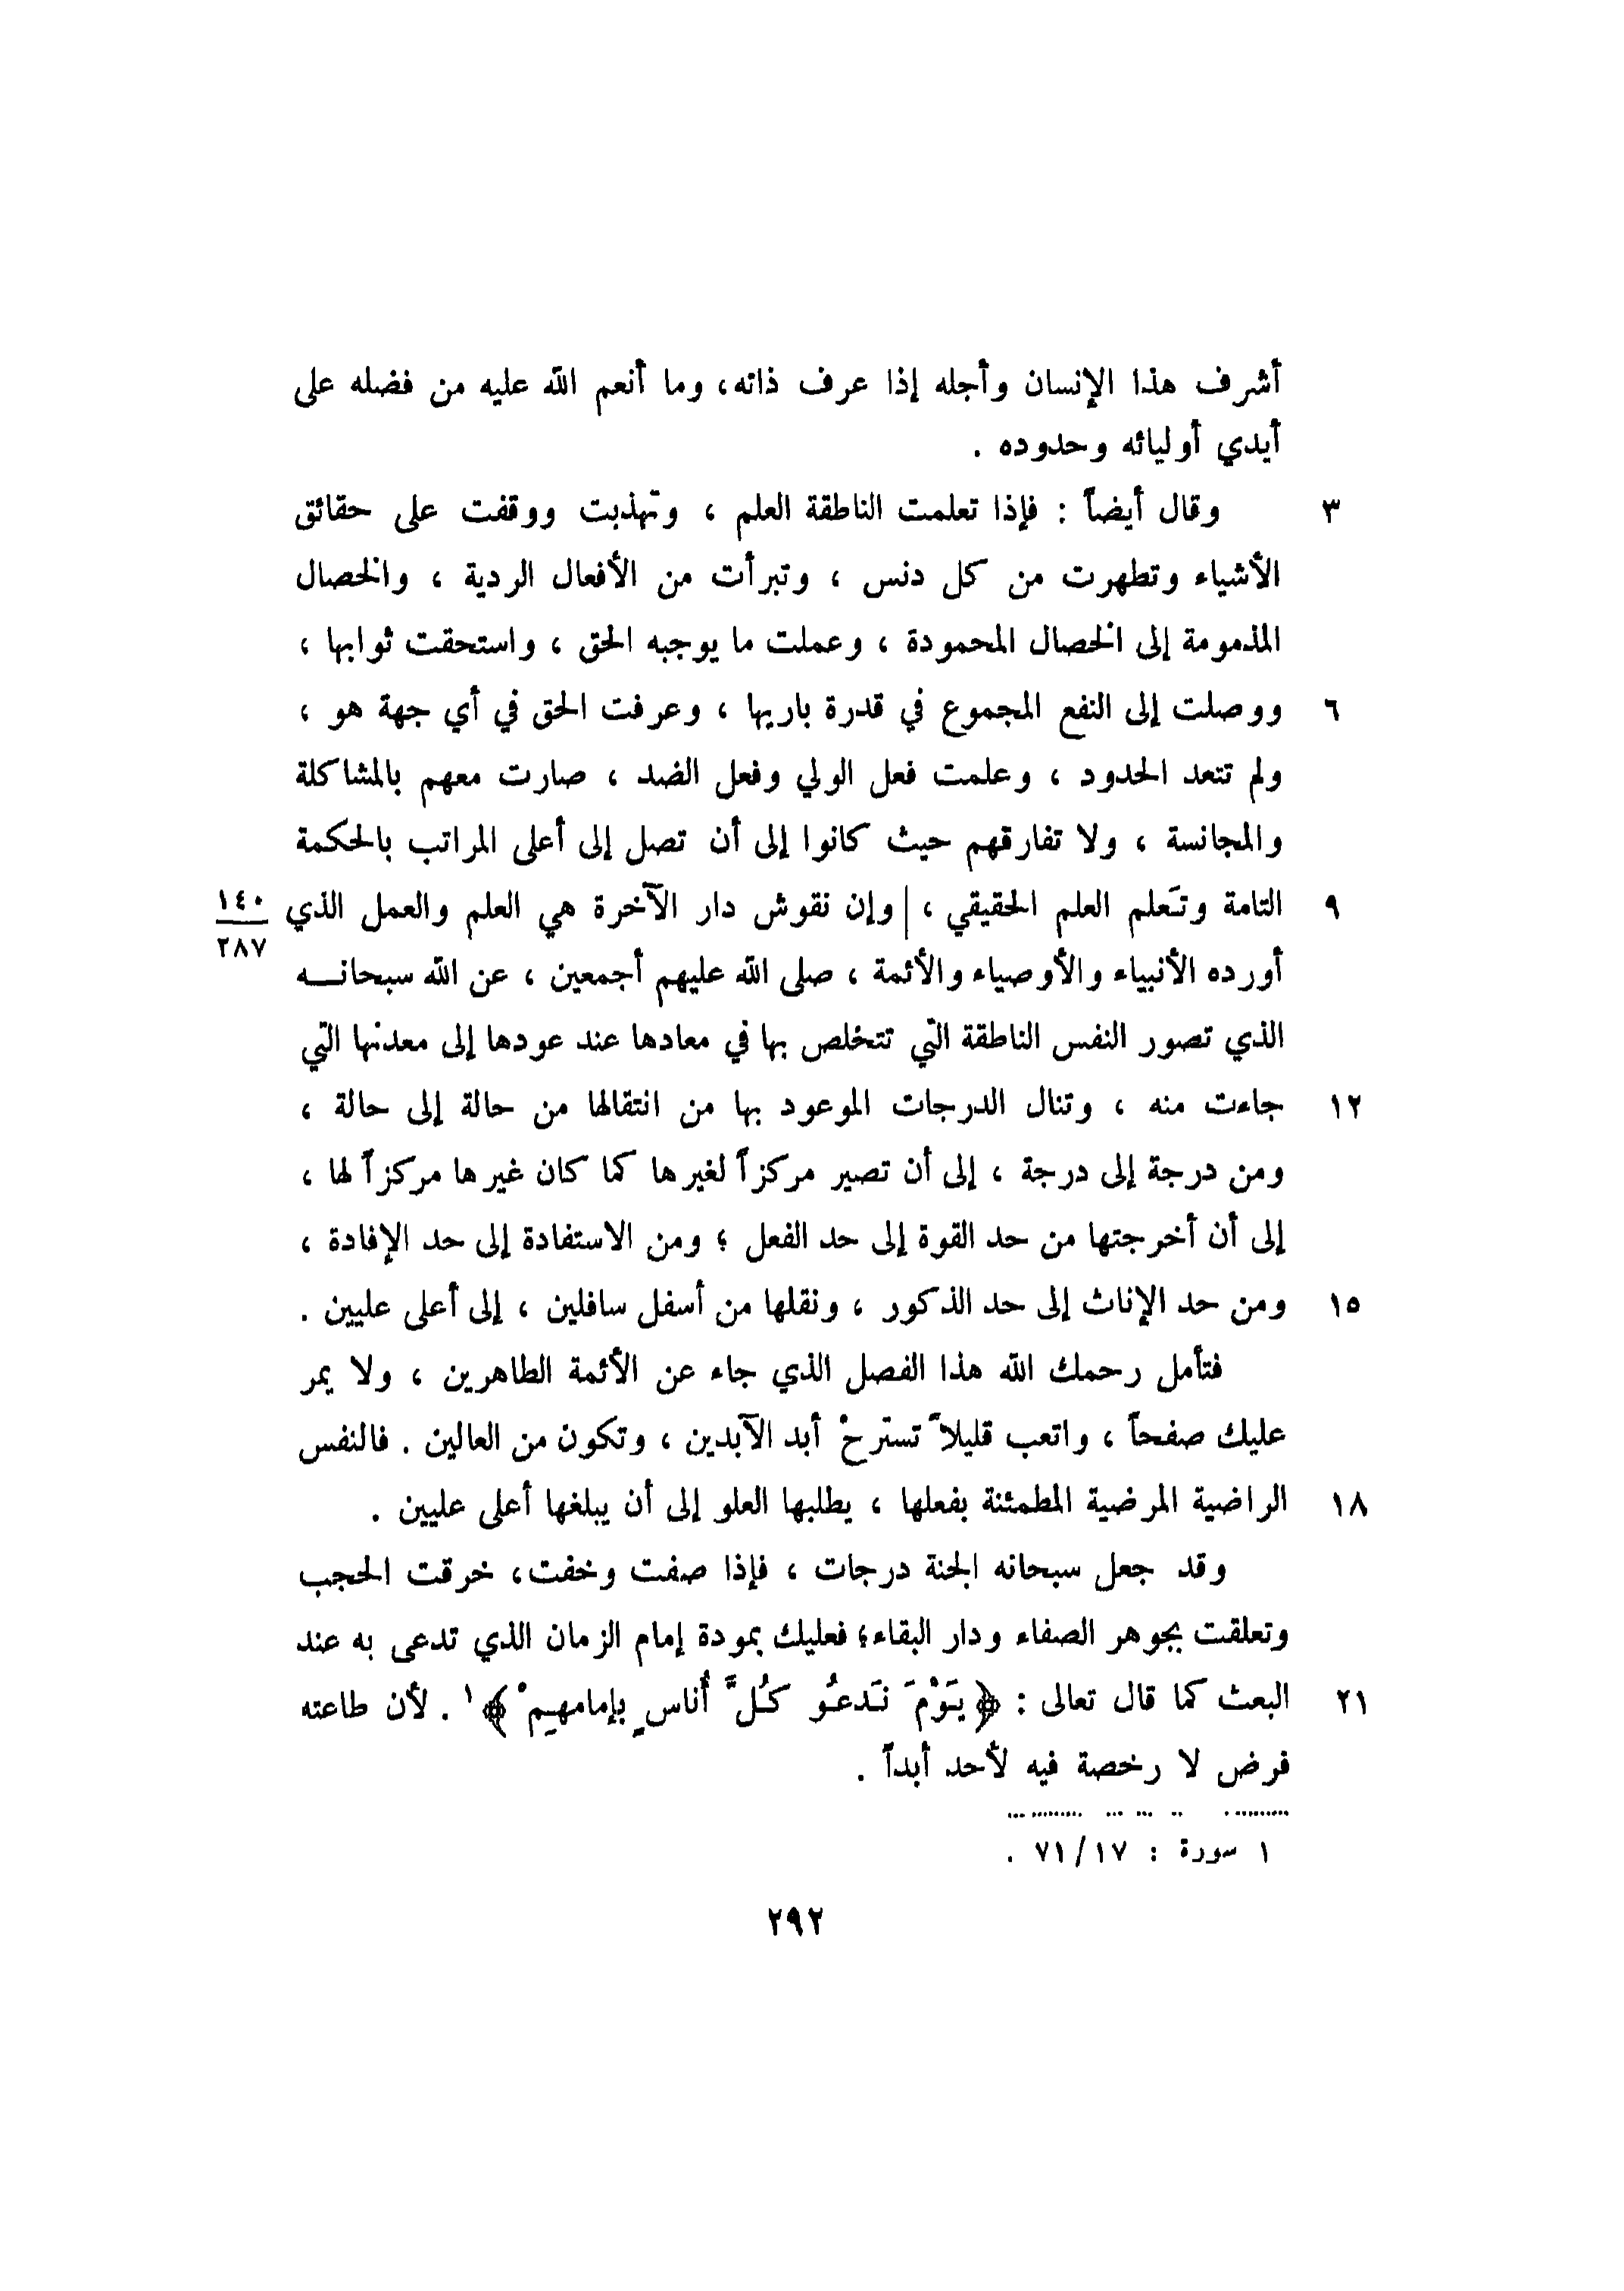 أشرف هذا الإنسان وأجله إذا عرف ذاته، وما أنعم الله عليه من فضله على
أيدي أوليائه وحدوده .
٣ وقال أيضاً : فإذا تعلمت الناطقة العلم ، وتهذبت ووقفت على حقائق
الأشياء وتطهرت من كل دنس ، وتبرأت من الأفعال الردية ، والخصال
المذمومة إلى الخصال المحمودة ، وعملت ما يوجبه الحق ، واستحقت ثوابها ،
٦ ووصلت إلى النفع المجموع في قدرة باريها ، وعرفت الحق في أي جهة هو ،
ولم تتعد الحدود ، وعلمت فعل الولي وفعل الضد ، صارت معهم بالمشاكلة
والمجانسة ، ولا تفارقهم حيث كانوا إلى أن تصل إلى أعلى المراتب بالحكمة
٩ التامة وتَعلم العلم الحقيقي ، | وإن نقوش دار الآخرة هي العلم والعمل الذي ١٤٠
٢٨٧
أورده الأنبياء والأوصياء والأئمة ، صلى الله عليهم أجمعين ، عن الله سبحانـــه
الذي تصور النفس الناطقة التي تتخلص بها في معادها عند عودها إلى معدنها التي
١٢ جاءت منه ، وتنال الدرجات الموعود بها من انتقالها من حالة إلى حالة ،
ومن درجة إلى درجة ، إلى أن تصير مركزاً لغيرها كما كان غيرها مركزاً لها ،
إلى أن أخرجتها من حد القوة إلى حد الفعل ؛ ومن الاستفادة إلى حد الإفادة ،
١٥ ومن حد الإناث إلى حد الذكور ، ونقلها من أسفل سافلين ، إلى أعلى عليين .
فتأمل رحمك الله هذا الفصل الذي جاء عن الأئمة الطاهرين ، ولا يمر
عليك صفحاً ، واتعب قليلاً تسترحْ أبد الآبدين ، وتكون من العالين . فالنفس
١٨ الراضية المرضية المطمئنة بفعلها ، يطلبها العلو إلى أن يبلغها أعلى عليين .
وقد جعل سبحانه الجنة درجات ، فإذا صفت وخفت، خرقت الحجب
وتعلقت بجوهر الصفاء ودار البقاء؛ فعليك بمودة إمام الزمان الذي تدعى به عند
٢١ البعث كما قال تعالى : ﴿يَوْمَ نَدعُو كُلَّ أُناسٍ بإمامهِمْ﴾١ . لأن طاعته
فرض لا رخصة فيه لأحد أبداً .
١ سورة : ٧١/١٧ .
٢٩٢